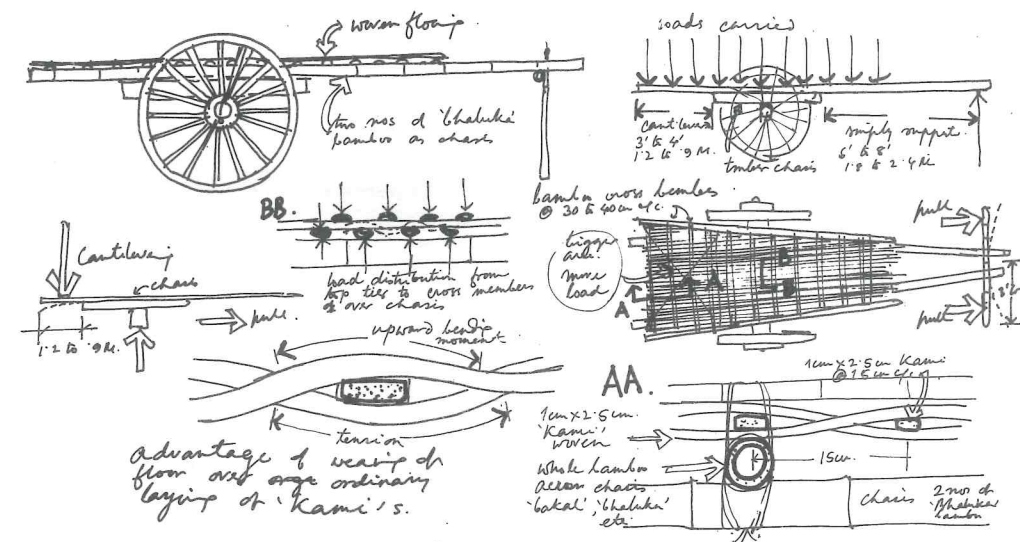 woven flooring
two nos of 'bhaluka'
bamboo as chasis
loads carried
cantilever
3' to 4'
1.2 to .9 M.
timber chasis
simply support
6' to 8'
1.8 to 2.4 M
BB.
load distribution from
top ties to cross members
over chasis
bamboo cross members
@ 30 to 40 cm c/c.
bigger
area
more
load
A
A
B
B
pull
pull
cantilevering
chasis
1.2 to .9 M.
pull.
upward bending
moment
tension
advantage of weaving of
floor over ordinary
laying of 'Kami's.
AA.
1cm x 2.5cm Kami
@ 15 cm c/c
1cm x 2.5cm.
'Kami'
woven
15cm.
whole bamboo
across chasis
'bakal', 'bhaluka'
etc
chasis
2 nos of
'Bhaluka'
bamboo